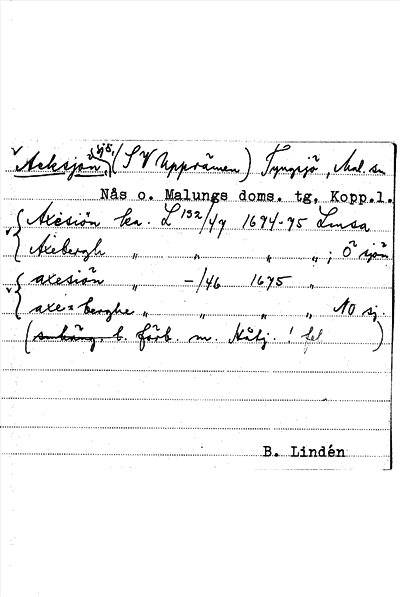 Acksjön, sjö, (SV Upprämen) Tyngsjö, Mal. sn
Nås o. Malungs doms. tg, Kopp.l.
Axesiön ka. L 192/49 1674-75 LmSa
Axebergh " " " " ; Ö sjön
axesiön " -/46 1675 "
axe=berghe " " " " NO sj.
( b. förb. m. ! fel )
B. Lindén